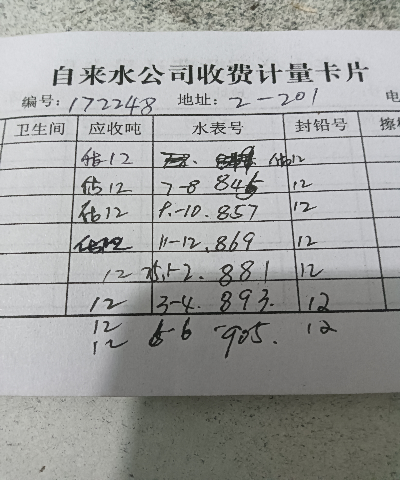 自来水公司收费计量卡片
编号: 172248 地址: 2-201 电
卫生间 应收吨 水表号 封铅号 擦
估12 估12
估12 7-8 845 12
估12 9.-10. 857 12
11-12. 869 12
12 25.1-2. 881 12
12 3-4. 893. 12
12 5-6 905. 12
12